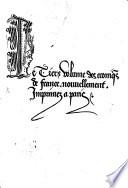 Le Tiers Volume des croniqz
de france. nouuellement
Imprimez a paris